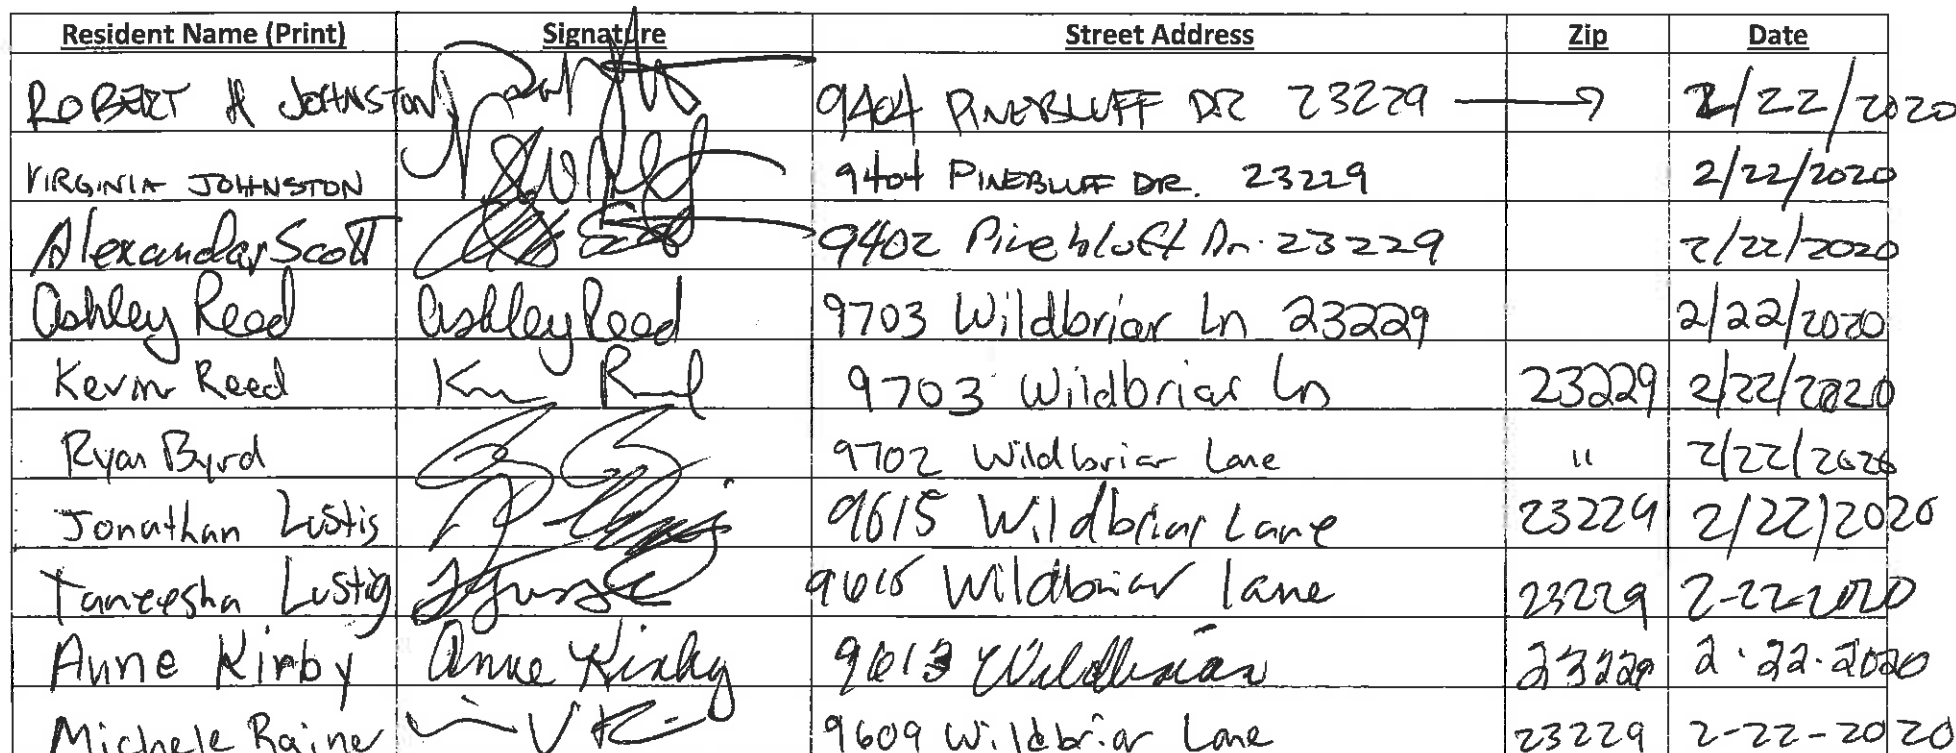 Resident Name (Print) Signature Street Address Zip Date
ROBERT H JOHNSTON 9404 PINEBLUFF DR 23229 → 2/22/2020
VIRGINIA JOHNSTON 9404 PINEBLUFF DR. 23229 2/22/2020
Alexander Scott 9402 Pinebluff Dr. 23229 2/22/2020
Ashley Reed Ashley Reed 9703 Wildbriar Ln 23229 2/22/2020
Kevin Reed 9703 Wildbriar Ln 23229 2/22/2020
Ryan Byrd 9702 Wildbriar Lane " 2/22/2020
Jonathan Lustig 9615 Wildbriar Lane 23229 2/22/2020
Taneesha Lustig 9615 Wildbriar Lane 23229 2-22-2020
Anne Kirby Anne Kirby 9613 Wildbriar 23229 2.22.2020
Michele Raine 9609 Wildbriar Lane 23229 2-22-2020